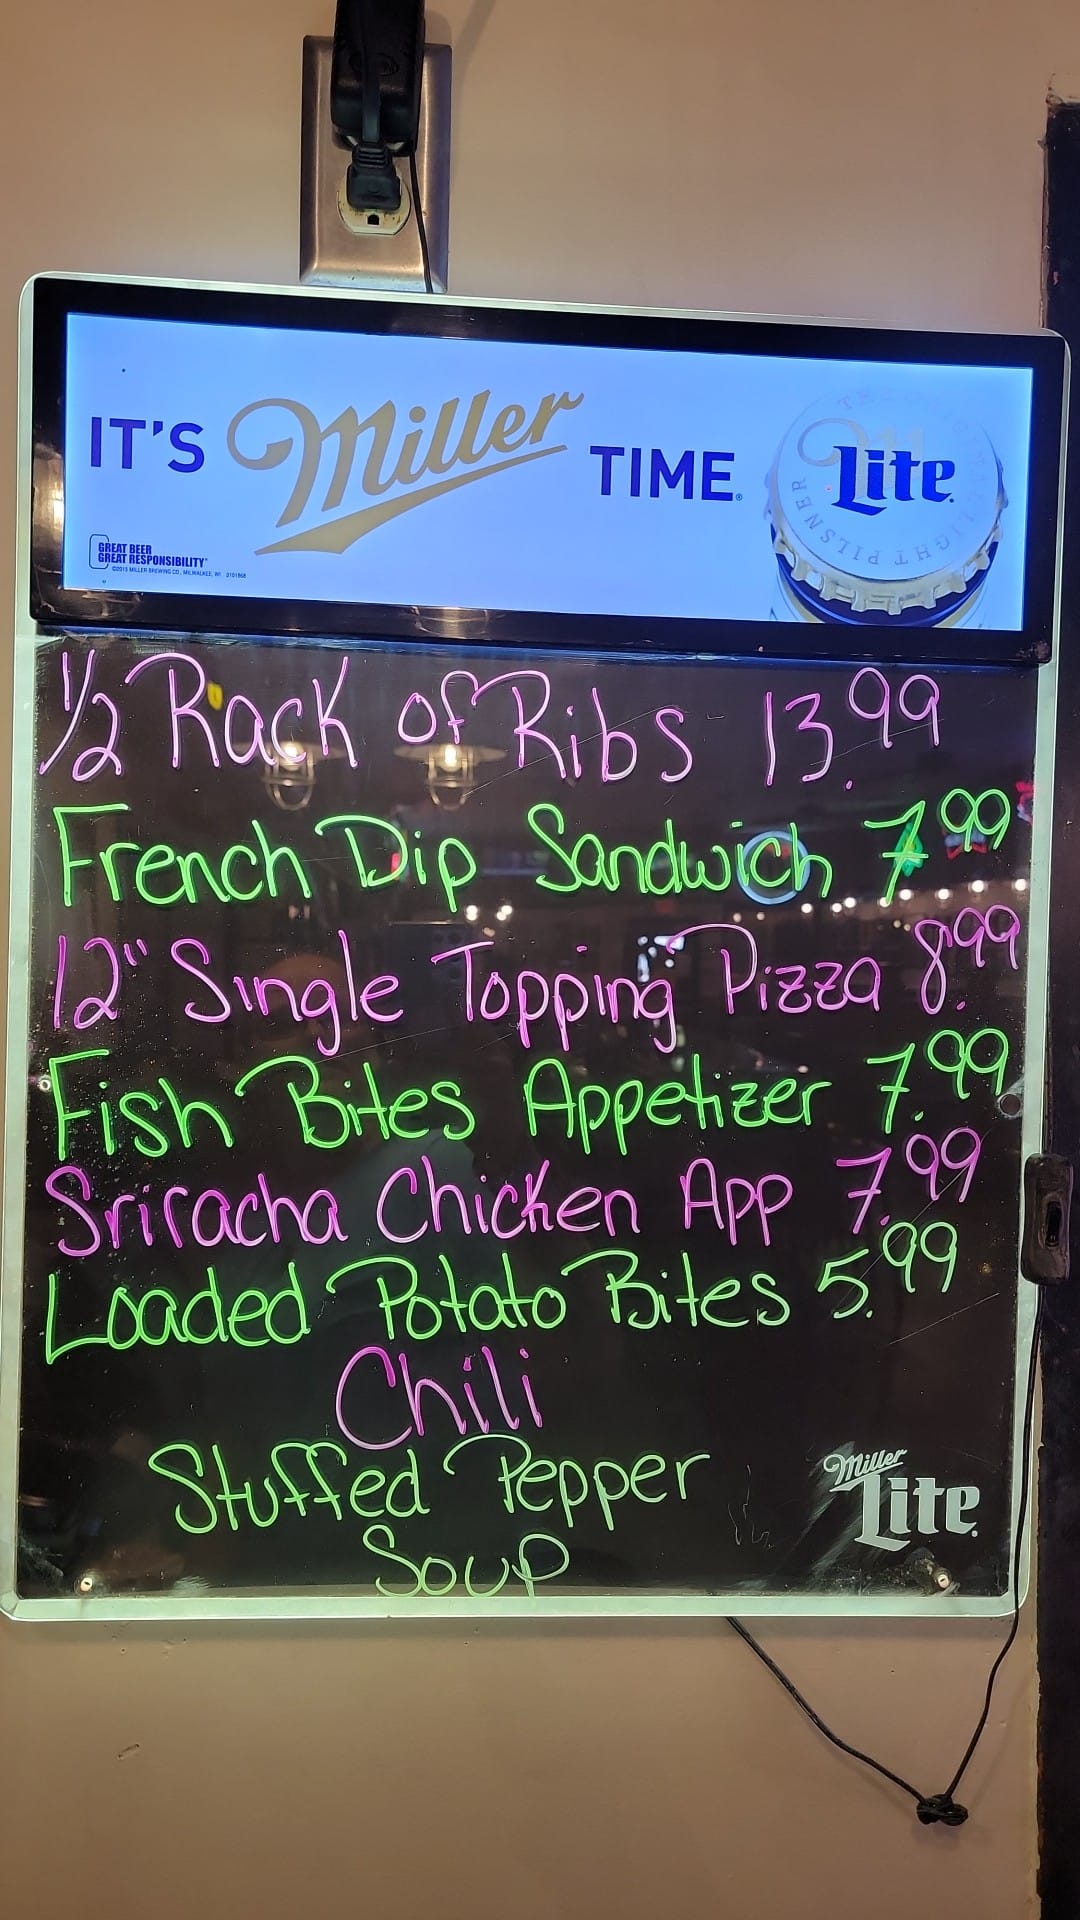 IT'S Miller TIME®
THE ORIGINAL LIGHT PILSNER
Lite
GREAT BEER
GREAT RESPONSIBILITY®
©2015 MILLER BREWING CO., MILWAUKEE, WI
1/2 Rack of Ribs 13.99
French Dip Sandwich 7.99
12" Single Topping Pizza 8.99
Fish Bites Appetizer 7.99
Sriracha Chicken App 7.99
Loaded Potato Bites 5.99
Chili
Stuffed Pepper
Soup
Miller
Lite